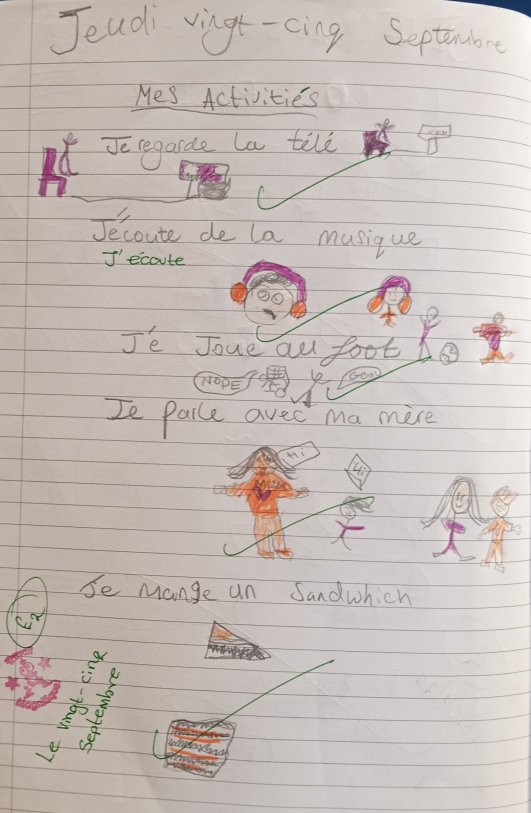 Jeudi vingt-cinq Septembre
Mes Activitiés
Je regarde La télé
J'écoute de la musique
J'écoute
J'é Joue au foot
NOPE
Goal
Je parle avec Ma mère
Hi
Hi
MUM
Je Mange un Sandwhich
E2
Le vingt-cinq
Septembre